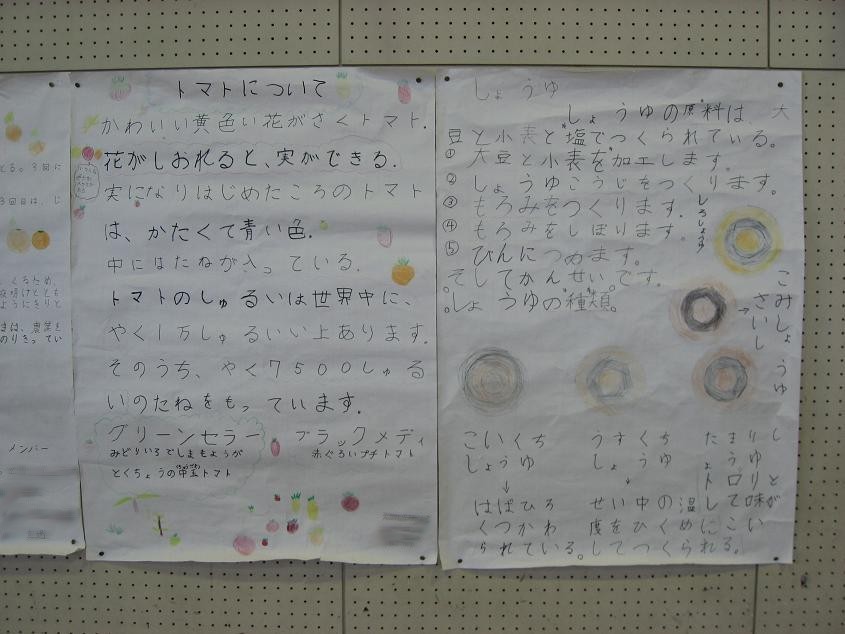 とる。3回に
3回目は、じ
くるため、
メンバー
トマトについて
かわいい黄色い花がさくトマト.
花がしおれると、実ができる.
実になりはじめたころのトマト
は、かたくて青い色.
中にはたねが入っている.
トマトのしゅるいは世界中に、
やく1万しゅるいい上あります.
そのうち、やく7500しゅる
いのたねをもっています.
グリーンセラー
みどりいろでしまもようが
とくちょうの中玉トマト
ブラックメディ
赤ぐろいプチトマト
しょうゆ
しょうゆの原料は、大
豆と小麦と塩でつくられている。
①大豆と小麦を加工します。
②しょうゆこうじをつくります。
③もろみをつくります.
④もろみをしぼります.
⑤びんにつめます。
そしてかんせい。です。
しょうゆの種類。
しろしょうゆ
さいしこみしょうゆ
こいくちしょうゆ
↓
はばひろくつかわれている。
うすくちしょうゆ
↓
せい中の温度をひくめにしてつくられる。
たまりしょうゆ
トロリとして味がこい